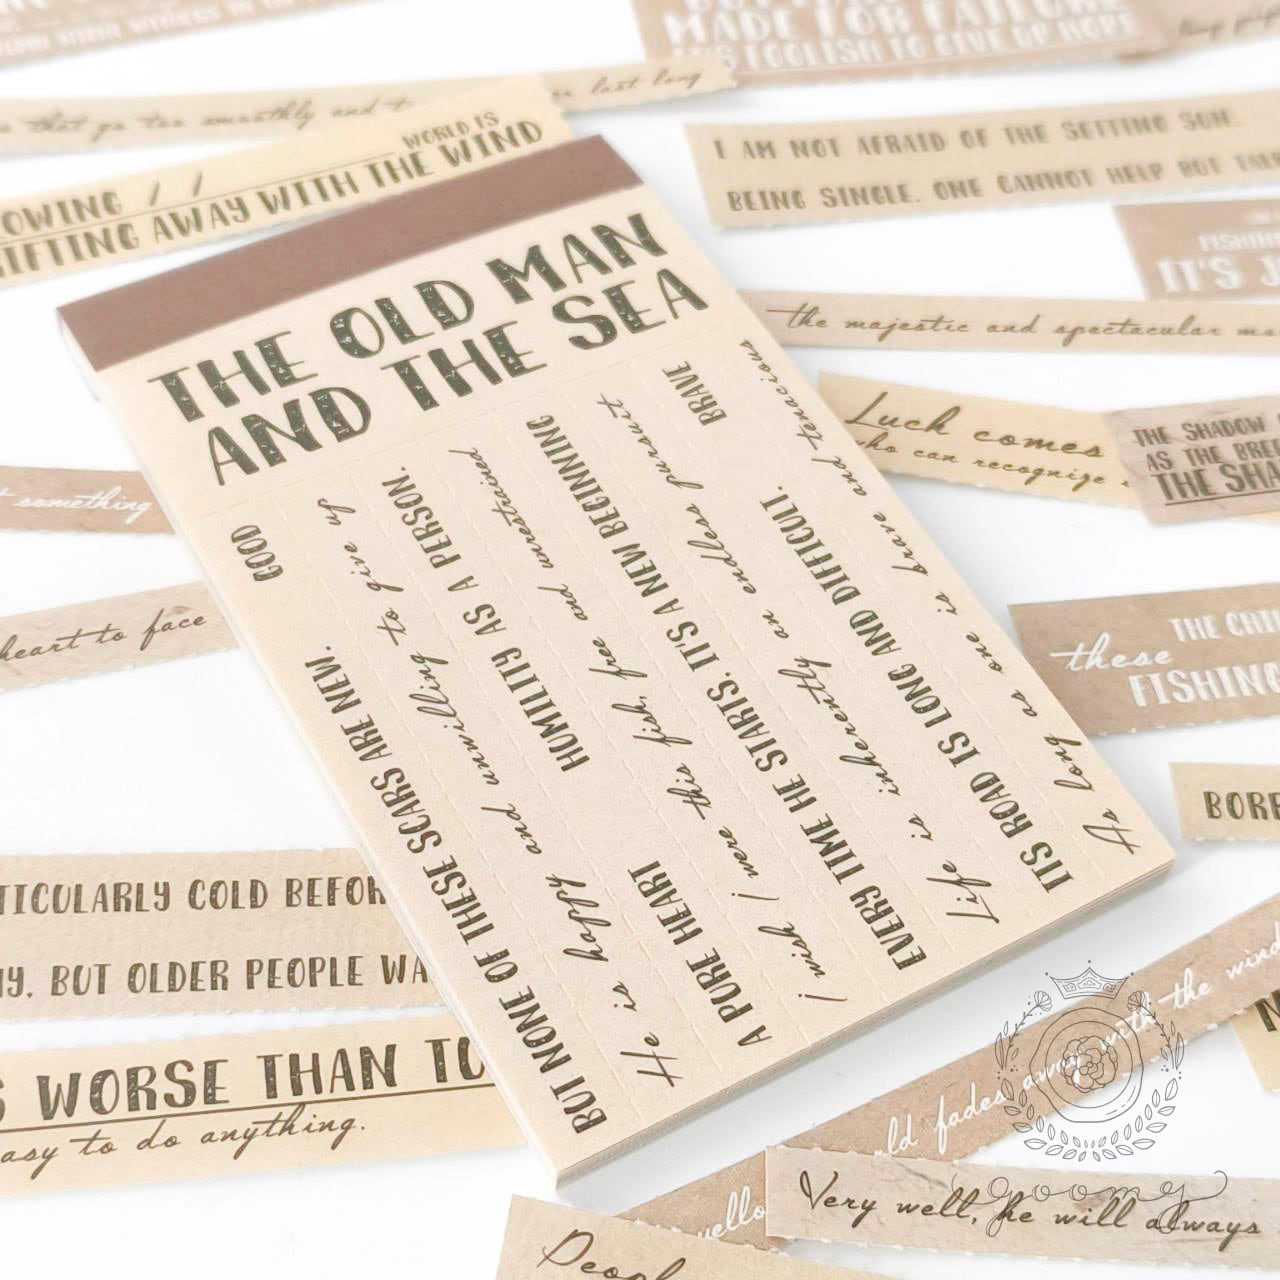 MADE FOR FAILURE
IT'S FOOLISH TO GIVE UP HOPE
that go too smoothly and
last long
WORLD IS
OWING / /
IFTING AWAY WITH THE WIND
I AM NOT AFRAID OF THE SETTING SUN.
BEING SINGLE. ONE CANNOT HELP BUT TAL
FISHIN
IT'S JO
the majestic and spectacular
Luck comes
who can recognize
THE SHADOW
AS THE BREE
THE SHA
THE OLD MAN
AND THE SEA
GOOD
BUT NONE OF THESE SCARS ARE NEW.
He is happy and unwilling to give up
A PURE HEART
HUMILITY AS A PERSON.
I wish I were this fish, free and unrestrained
EVERY TIME HE STARTS, IT'S A NEW BEGINNING
Life is inherently an endless pursuit
BRAVE
ITS ROAD IS LONG AND DIFFICULT.
As long as one is brave and tenacious
something
heart to face
these
THE CHI
FISHING
BORE
TICULARLY COLD BEFOR
Y, BUT OLDER PEOPLE WA
S WORSE THAN TO
asy to do anything.
ld fades away with the wind
ello
Very well, he will always
Peop
goomy